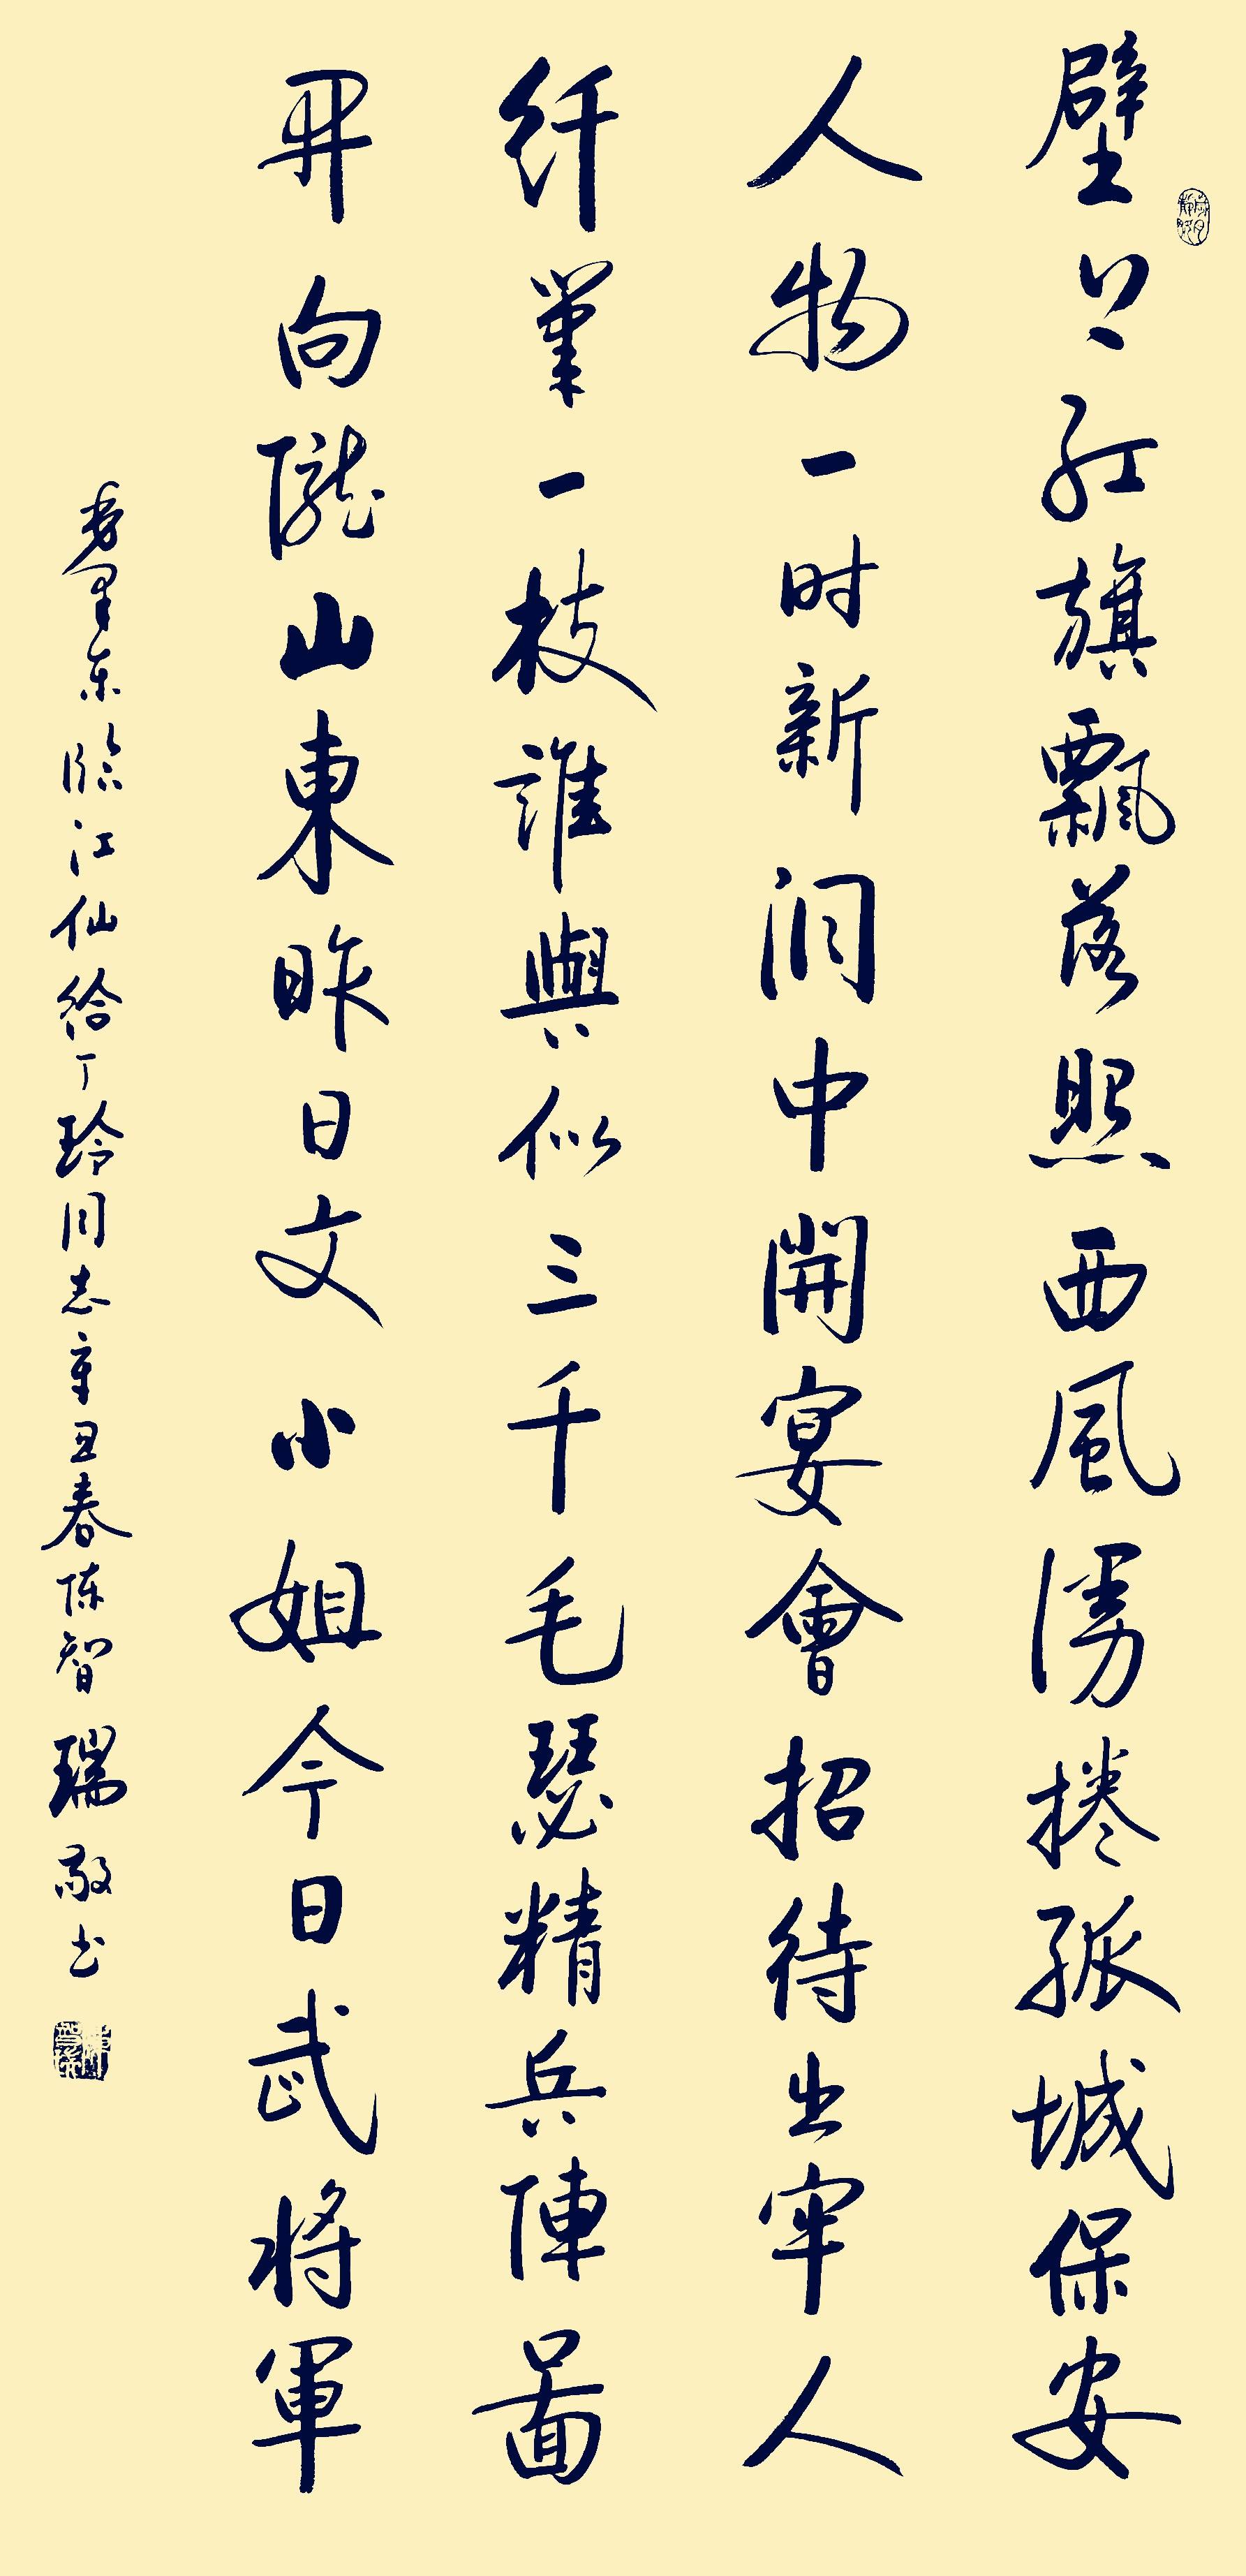 壁上红旗飄落照西風漫捲孤城保安
人物一时新洞中開宴會招待出牢人
纤筆一枝誰與似三千毛瑟精兵陣圖
开向隴山東昨日文小姐今日武将軍
毛泽东临江仙给丁玲同志辛丑春陈智瑞敬书